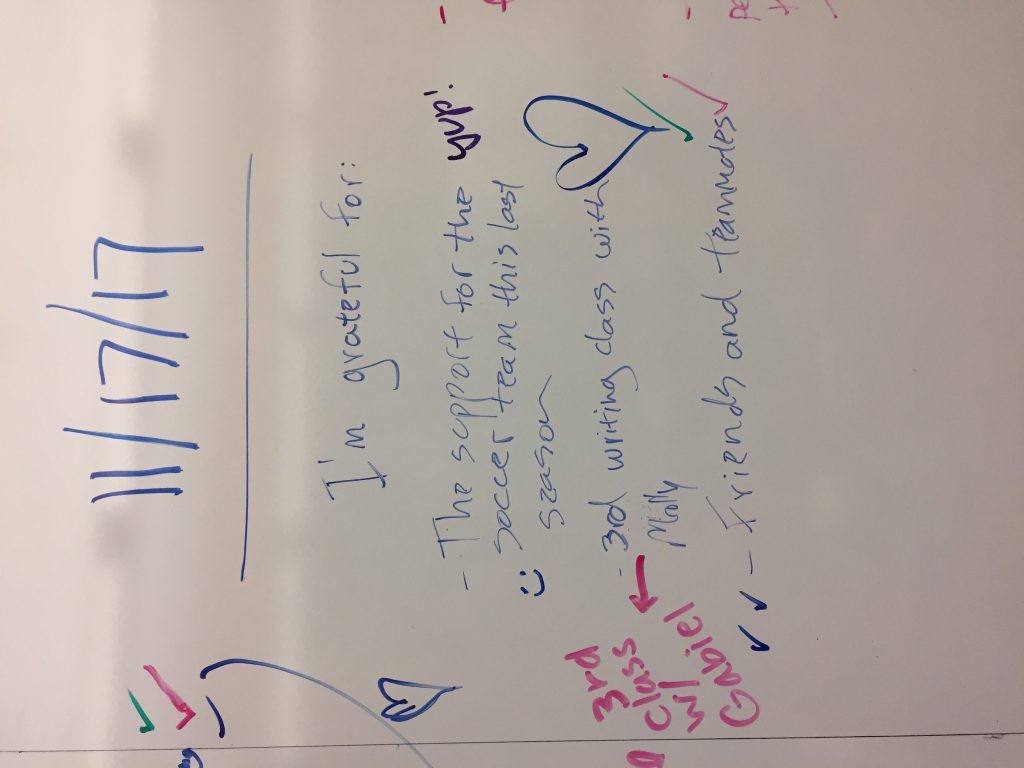 11/17/17
I'm grateful for:
- The support for the yup!
soccer team this last
season
- 3rd writing class with
Molly
3rd
class
w/
Gabiel
- Friends and teammates